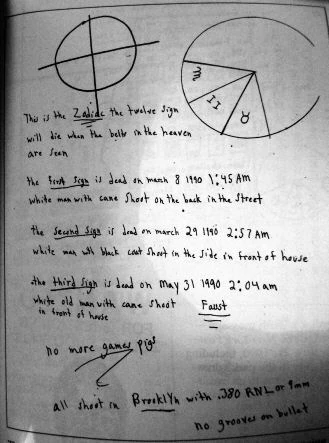 This is the Zodiac the twelve sign
will die when the belts in the heaven
are seen
the first sign is dead on march 8 1990 1:45 AM
white man with cane shoot on the back in the street
the second sign is dead on march 29 1990 2:57 AM
white man with black coat shoot in the side in front of house
the third sign is dead on May 31 1990 2:04 am
white old man with cane shoot
in front of house
Faust
no more games pigs
all shoot in Brooklyn with .380 RNL or 9mm
no grooves on bullet